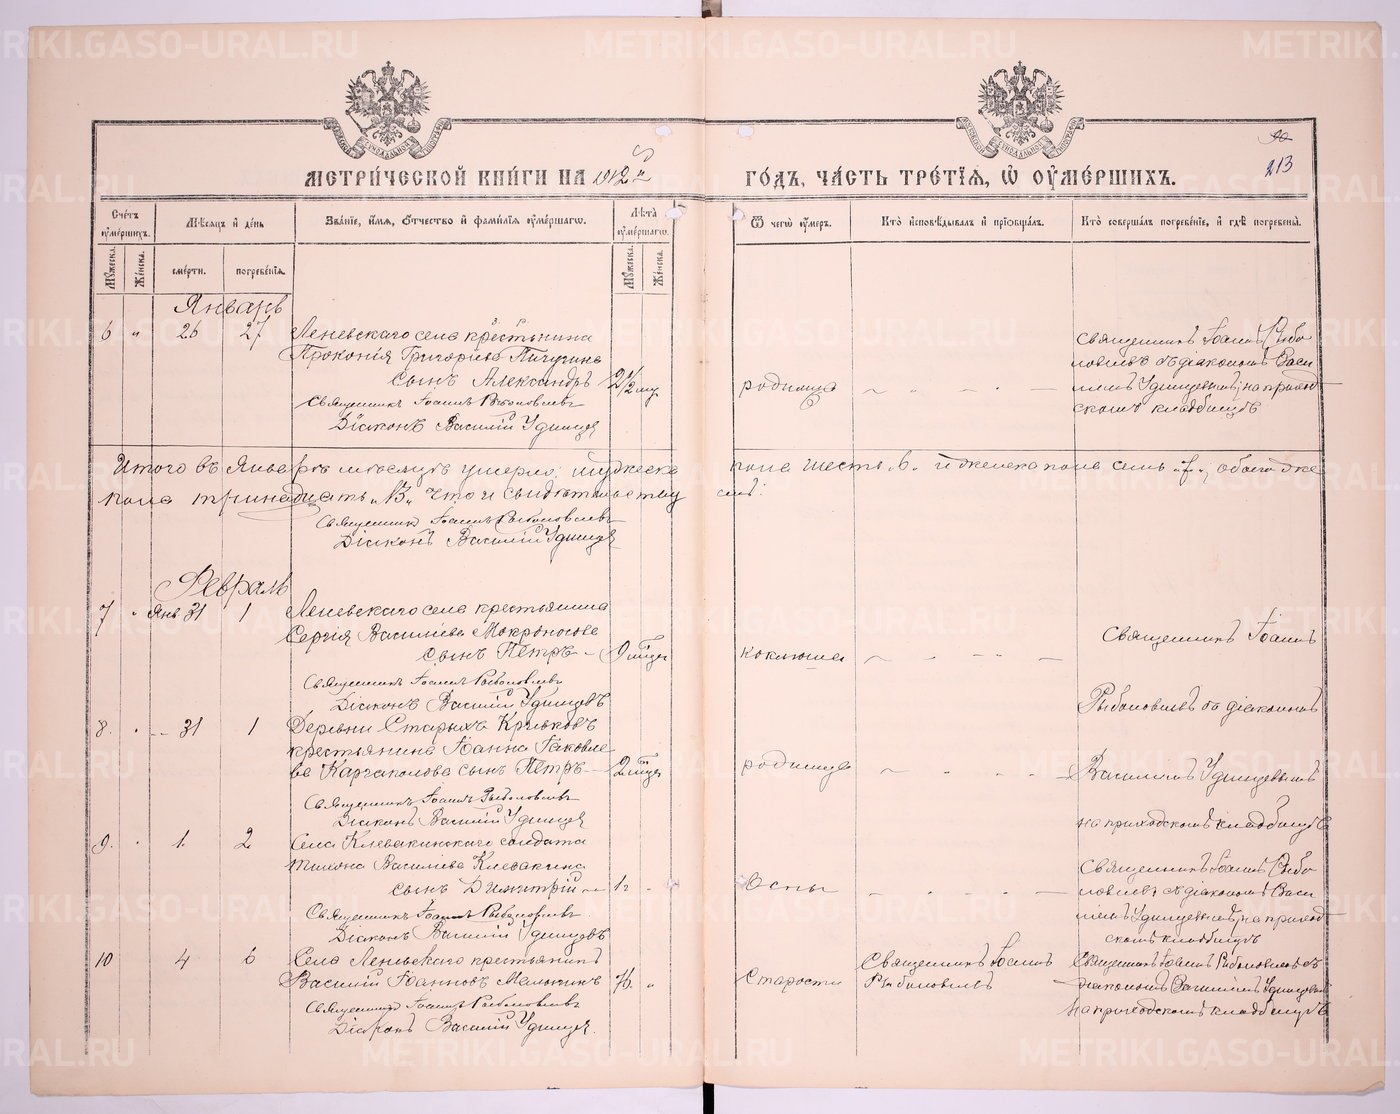 METRIKI.GASO-URAL.RU
МЕТРИ́ЧЕСКОЙ КНИ́ГИ НА 1912 й
ГО́ДЪ, ЧА́СТЬ ТРЕ́ТІѦ, Ѡ ОУМЕ́РШИХЪ.
213
Сче́тъ оуме́ршихъ.
Мѣ́сяцъ и҆ де́нь
Зва́ніе, и҆́мѧ, ѻ҆́тчество и҆ фами́лія оуме́ршагѡ.
Лѣ́та оуме́ршагѡ.
Ѿ чегѡ̀ оу́меръ.
Кто̀ и҆сповѣ́дывалъ и҆ приѡбща́лъ.
Кто̀ соверша́лъ погребе́ніе, и҆ гдѣ̀ погребены̀.
Му́жеска.
Же́нска.
сме́рти.
погребе́нія.
Му́жеска.
Же́нска.
Январь
6 " 26 27 Леневскаго села крестьянина
Прокопія Григорьева Пичугина
сынъ Александръ 2 1/2 мц.
Священникъ Іоаннъ Рыболовлевъ
Діаконъ Василій Удинцев
родимца
Священникъ Іоаннъ Рыбо
ловлевъ съ діакономъ Васи
ліемъ Удинцевымъ, на приход
скомъ кладбищѣ
Итого въ Январѣ мѣсяцѣ умерло: мужеска
пола шесть „6" и женска пола семь „7", обоего же
пола тринадцать „13" что и свидѣтельству
емъ:
Священникъ Іоаннъ Рыболовлевъ
Діаконъ Василій Удинцев
Февраль
7 " Янв 31 1 Леневскаго села крестьянина
Сергія Василіева Мокроносова
сынъ Петръ 9 мѣсц
Священникъ Іоаннъ Рыболовлевъ
Діаконъ Василій Удинцевъ
коклюша
Священникъ Іоаннъ
Рыболовлевъ съ діакономъ
8. " 31 1 Деревни Старыхъ Кривковъ
крестьянина Іоанна Іаковле
ва Карчаполова сынъ Петръ 2 мѣсц
Священникъ Іоаннъ Рыболовлевъ
Діаконъ Василій Удинцев
родимца
Василіемъ Удинцевымъ
на приходскомъ кладбищѣ
9. " 1. 2 Села Клевакинскаго солдата
Тихона Василіева Клевакина
сынъ Димитрій 1 г "
Священникъ Іоаннъ Рыболовлевъ
Діаконъ Василій Удинцевъ
Оспы
Священникъ Іоаннъ Рыбо
ловлевъ съ діакономъ Васи
ліемъ Удинцевымъ, на приход
скомъ кладбищѣ
10 4 6 Села Леневскаго крестьянинъ
Василій Іоанновъ Малыгинъ 76 "
Священникъ Іоаннъ Рыболовлевъ
Діаконъ Василій Удинцев.
Старости
Священникъ Іоаннъ
Рыболовлевъ
Священникъ Іоаннъ Рыболовлевъ съ
діакономъ Василіемъ Удинцевымъ
на приходскомъ кладбищѣ